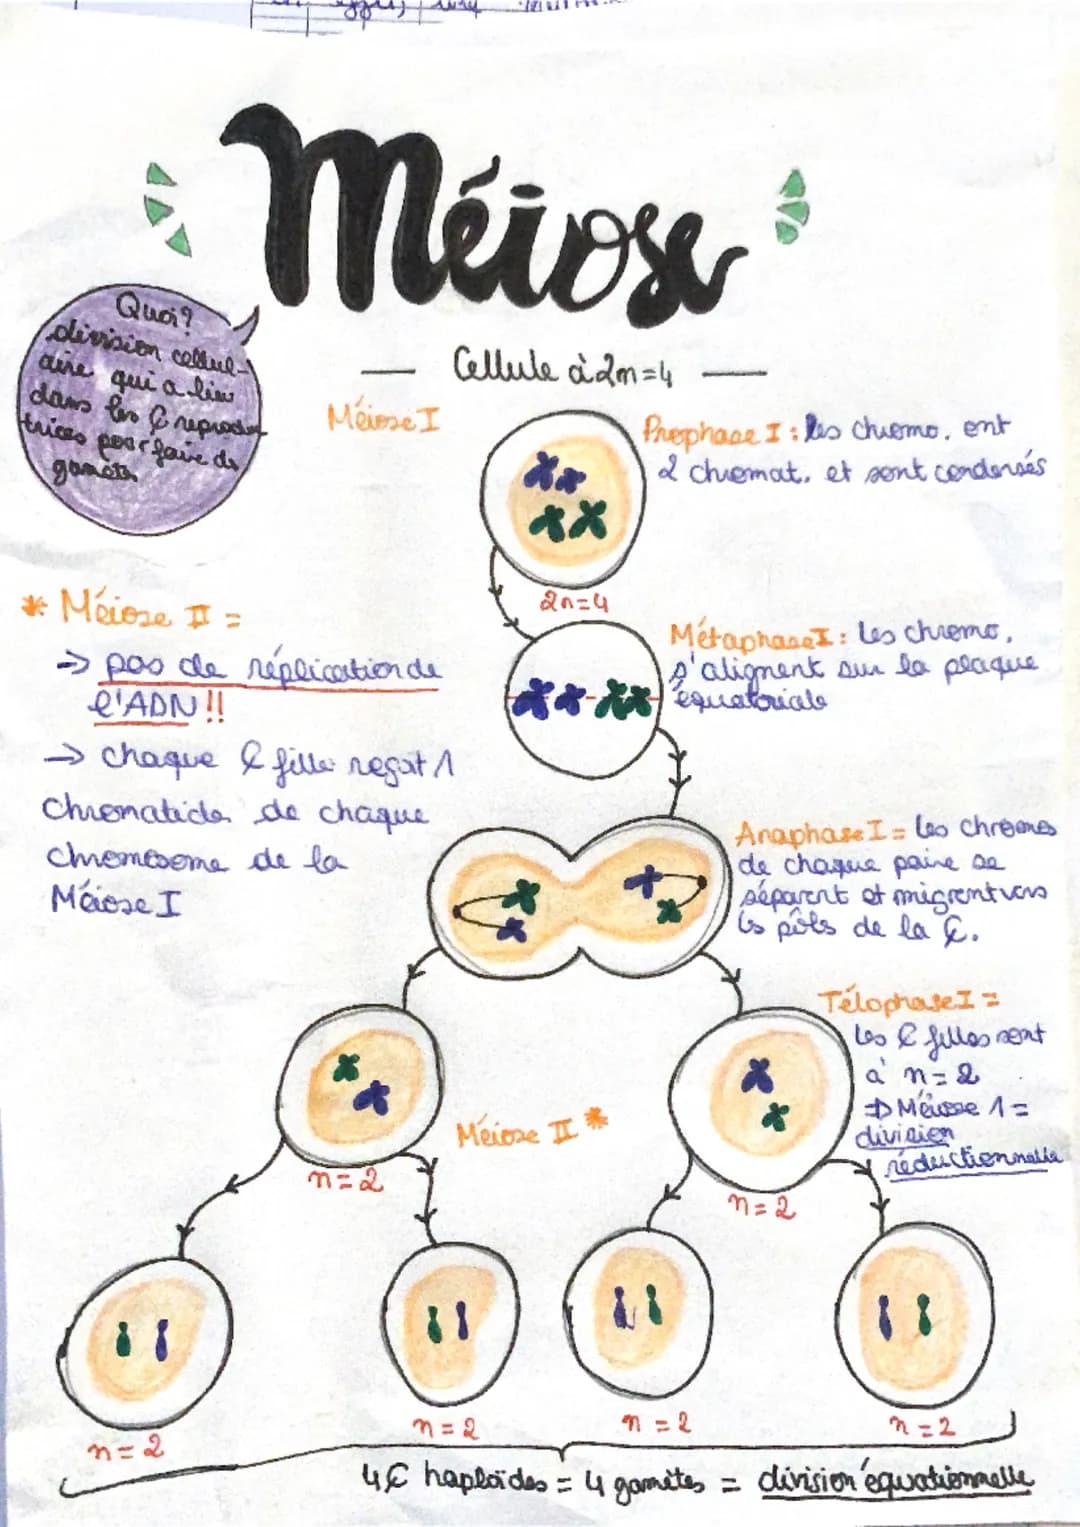 Méiose
Quoi?
division cellul-
aire qui a lieu
dans les ₵ reproduc
trices pour faire ds
gamètes
Cellule à 2n=4
Méiose I
Prophase I : les chromo. ont
2 chromat. et sont condensés
2n=4
* Méiose II =
→ pas de réplication de
l'ADN !!
→ chaque ₵ fille reçoit 1
chromatide de chaque
chromosome de la
Méiose I
Métaphase I : Les chromo.
s'alignent sur la plaque
équatoriale
Anaphase I = Les chromos
de chaque paire se
séparent et migrent vers
ls pôls de la ₵.
Télophase I =
Les ₵ filles sont
à n=2
⇒ Méiose 1 =
division
réductionnelle
Méiose II *
n=2
n=2
n=2
n=2
n=2
n=2
4 ₵ haploïdes = 4 gamètes = division équationnelle